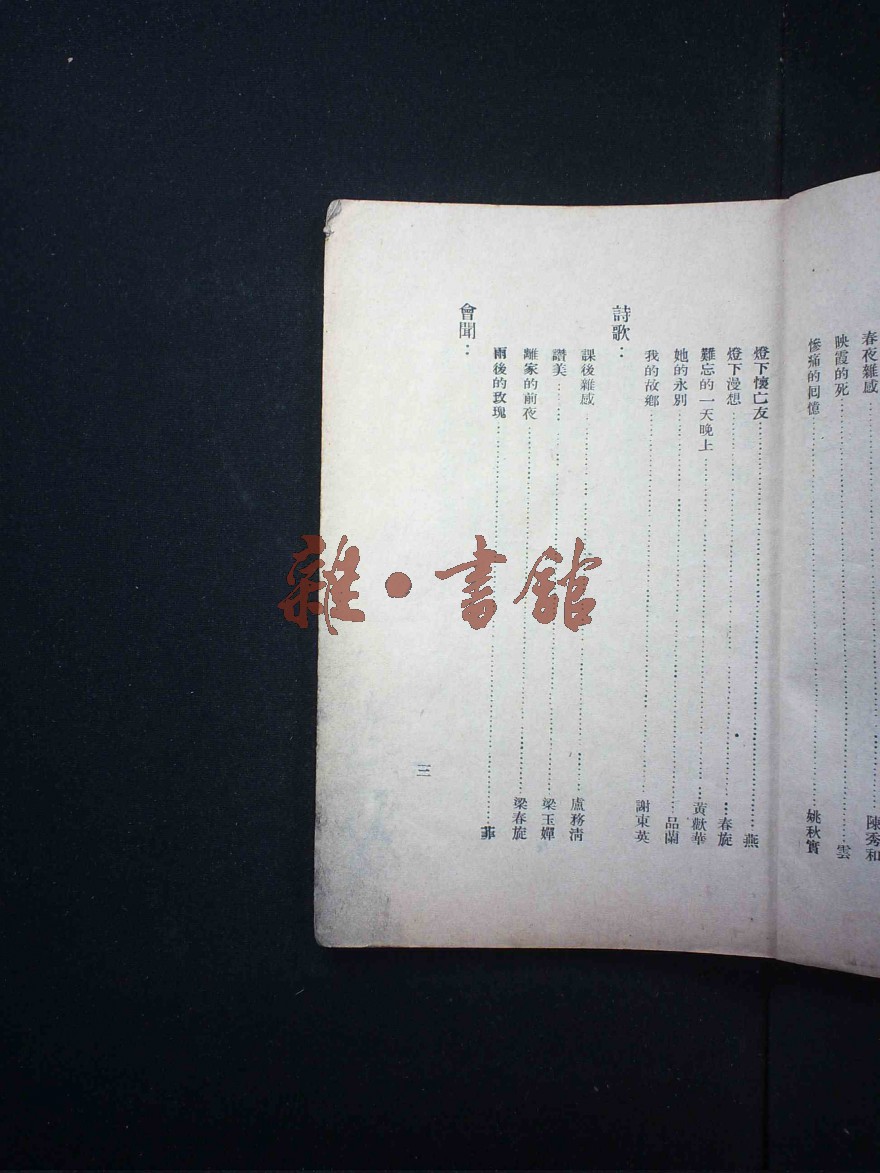 春夜雜感……陳秀和
映霞的死……雲
慘痛的回憶……姚秋實
燈下懷亡友……燕
燈下漫想……春旋
難忘的一天晚上……黃歡華
她的永別……品蘭
我的故鄉……謝東英
詩歌：
課後雜感……盧務清
讚美……梁玉嬋
離家的前夜……梁春旋
雨後的玫瑰……菲
會聞：
三
雜·書館